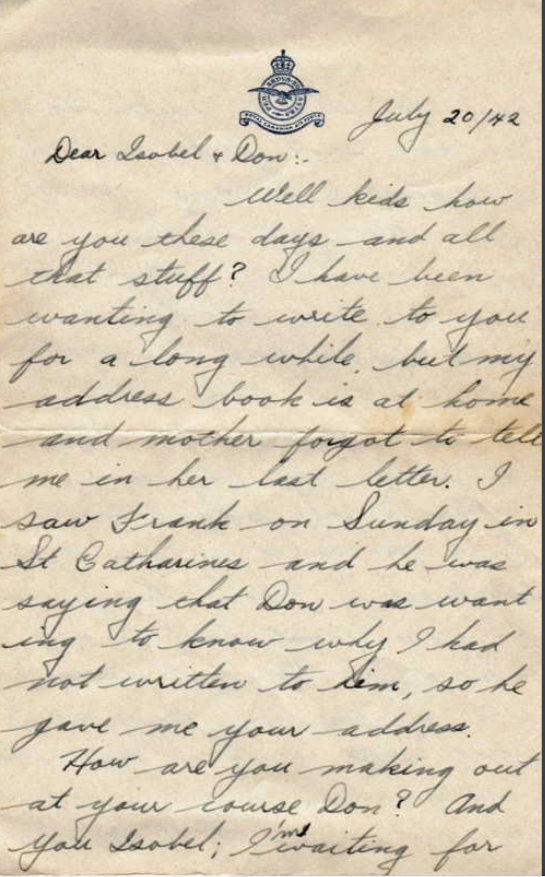 PER ARDUA AD ASTRA
ROYAL CANADIAN AIR FORCE
July 20/42
Dear Isobel + Don:-
Well kids how
are you these days and all
that stuff? I have been
wanting to write to you
for a long while, but my
address book is at home
and mother forgot to tell
me in her last letter. I
saw Frank on Sunday in
St Catharines and he was
saying that Don was want
ing to know why I had
not written to him, so he
gave me your address.
How are you making out
at your course Don? And
you Isobel; I'me waiting for